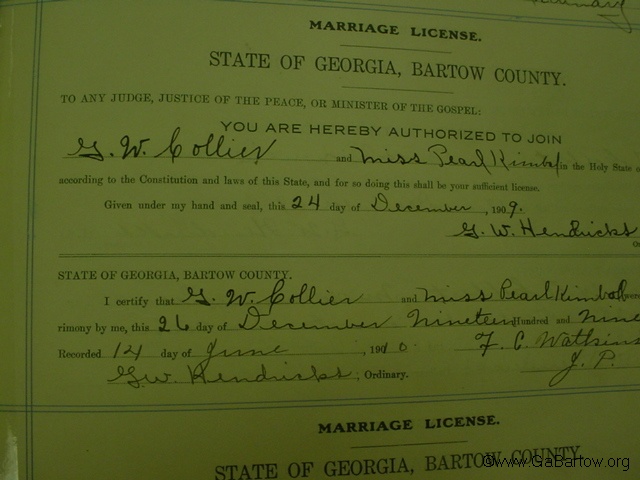 MARRIAGE LICENSE.
STATE OF GEORGIA, BARTOW COUNTY.
TO ANY JUDGE, JUSTICE OF THE PEACE, OR MINISTER OF THE GOSPEL:
YOU ARE HEREBY AUTHORIZED TO JOIN
G. W. Collier and Miss Pearl Kimbel in the Holy State
according to the Constitution and laws of this State, and for so doing this shall be your sufficient license.
Given under my hand and seal, this 24 day of December, 1909.
G. W. Hendricks
STATE OF GEORGIA, BARTOW COUNTY.
I certify that G. W. Collier and Miss Pearl Kimbel were
rimony by me, this 26 day of December Nineteen Hundred and Nine
Recorded 14 day of June, 1910. F. C. Watkins
G. W. Hendricks, Ordinary. J. P.
MARRIAGE LICENSE.
STATE OF GEORGIA, BARTOW COUNTY.
©www.GaBartow.org